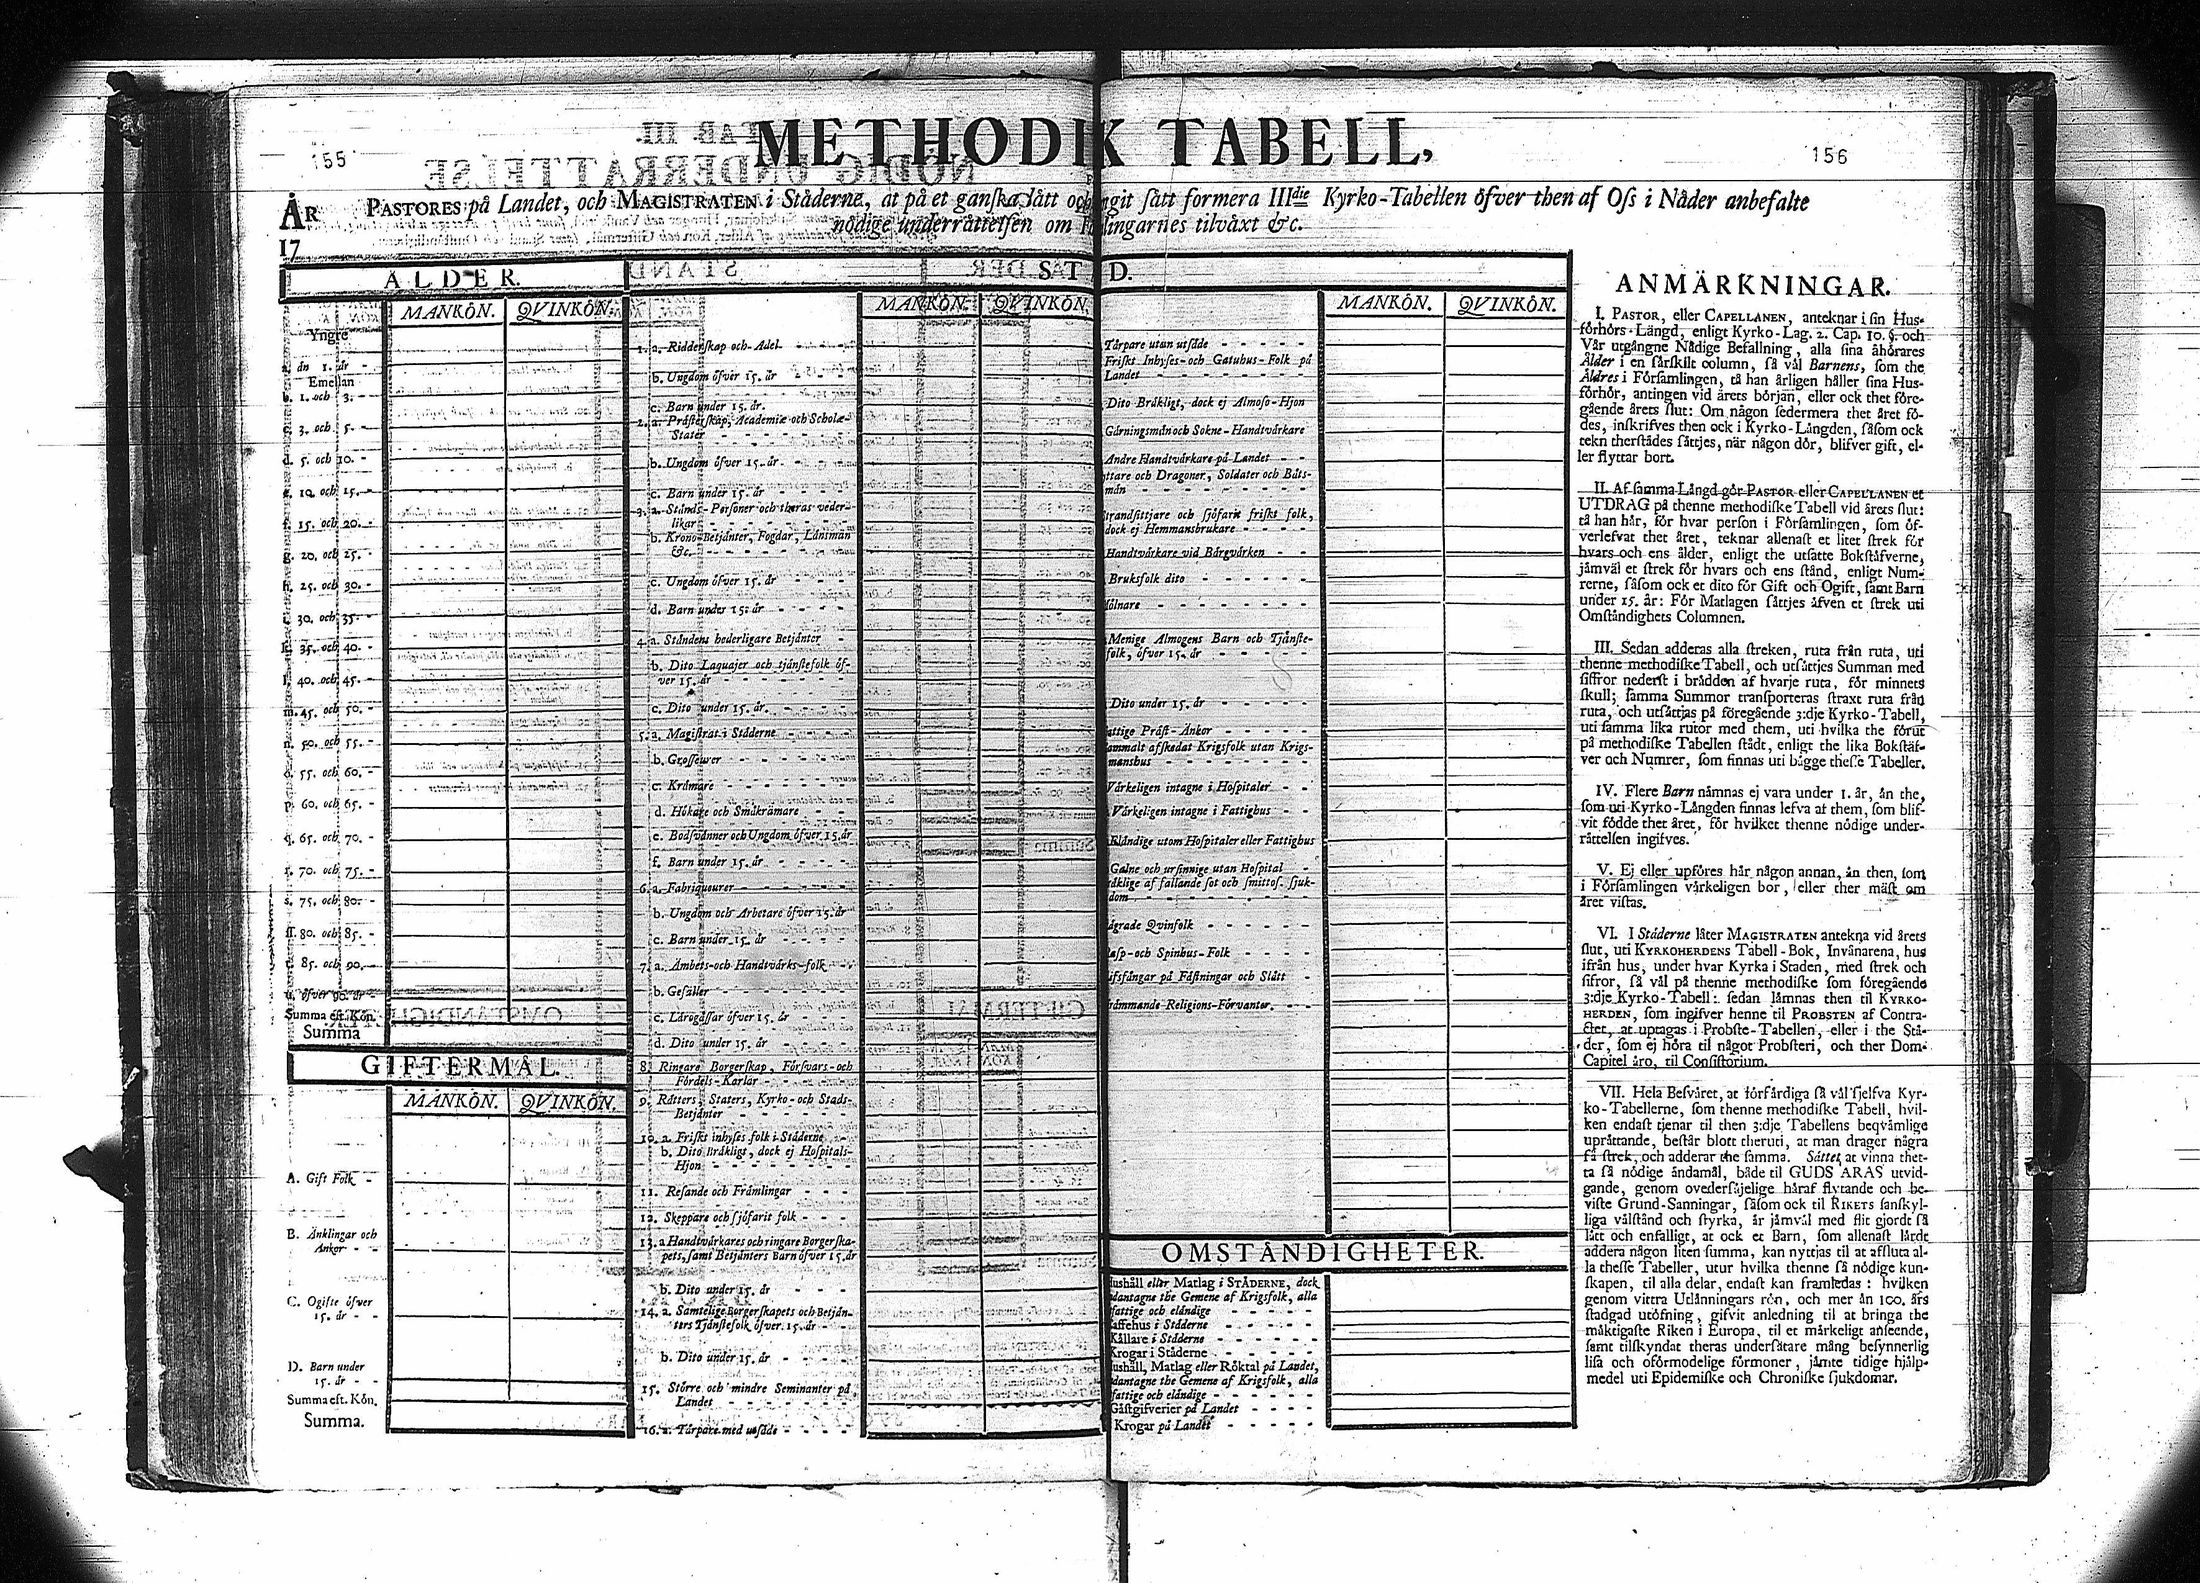 155
156
METHODIK TABELL,
ÅR
17
PASTORES på Landet, och MAGISTRATEN i Ståderne, at på et ganſka lått och sätt formera IIIdie Kyrko-Tabellen öfver then af Oſs i Nåder anbefalte
nödige underråttelſen om tilvåxt &c.
ÅLDER.
MANKÖN. QVINKÖN.
Yngre
a. ån 1. år -
Emellan
b. 1. och 3. -
c. 3. och 5. -
d. 5. och 10. -
e. 10. och 15. -
f. 15. och 20. -
g. 20. och 25. -
h. 25. och 30. -
i. 30. och 35. -
k. 35. och 40. -
l. 40. och 45. -
m. 45. och 50. -
n. 50. och 55. -
o. 55. och 60. -
p. 60. och 65. -
q. 65. och 70. -
r. 70. och 75. -
s. 75. och 80. -
ſſ. 80. och 85. -
t. 85. och 90. -
u. öfver 90. år -
Summa eft. Kön.
Summa
GIFTERMÅL.
MANKÖN. QVINKÖN.
A. Gift Folk -
B. Änklingar och
Änkor - -
C. Ogifte öfver
15. år - -
D. Barn under
15. år - -
Summa eft. Kön.
Summa.
ST D.
MANKÖN. QVINKÖN.
1. a. Ridderſkap och Adel - - -
b. Ungdom öfver 15. år - - -
c. Barn under 15. år.
2. a. Pråſterſkap, Academiæ och Scholæ-
Stater - - - - - -
b. Ungdom öfver 15. år - - -
c. Barn under 15. år - - - -
3. a. Stånds-Perſoner och theras veder-
likar - - - - - -
b. Krono-Betjänter, Fogdar, Länsmån
&c. - - - - - -
c. Ungdom öfver 15. år - - -
d. Barn under 15. år - - - -
4. a. Ståndens hederligare Betjånter -
b. Dito Laquajer och tjånſtefolk öf-
ver 15. år - - - - - -
c. Dito under 15. år. - - - -
5. a. Magiſtrat i Ståderne - - - -
b. Groſſeurer - - - - - -
c. Kråmare - - - - - -
d. Hökare och Småkråmare - -
e. Bodſvånner och Ungdom öfver 15. år
f. Barn under 15. år - - - -
6. a. Fabriqueurer - - - - - -
b. Ungdom och Arbetare öfver 15. år
c. Barn under 15. år - - - -
7. a. Åmbets- och Handtvårks-folk - -
b. Geſåller - - - - - -
c. Lårogåſſar öfver 15. år - - -
d. Dito under 15. år - - - -
8. Ringare Borgerſkap, Förſvars- och
Fördels-Karlar - - - -
9. Råtters, Staters, Kyrko- och Stads-
Betjånter - - - - -
10. a. Friſkt inhyſes folk i Ståderne -
b. Dito Bråkligt, dock ej Hoſpitals-
Hjon - - - - - -
11. Reſande och Fråmlingar - - -
12. Skeppare och ſjöfarit folk - - -
13. a Handtvårkares och ringare Borgerſka-
pets, ſamt Betjånters Barn öfver 15. år
b. Dito under 15. år - - - -
14. a. Samtelige Borgerſkapets och Betjån-
ters Tjånſtefolk öfver 15. år - -
b. Dito under 15. år - - - -
15. Större och mindre Seminanter på
Landet - - - - - -
16. a. Tårpare med utſåde - - - -
MANKÖN. QVINKÖN.
Tårpare utan utſåde - - - - -
Friſkt Inhyſes- och Gatuhus-Folk på
Landet - - - - - - -
Dito Bråkligt, dock ej Almoſo-Hjon
Gårningsmån och Sokne-Handtvårkare
Andre Handtvårkare på Landet - -
och Dragoner, Soldater och Båts-
mån - - - - - - -
och ſjöfarit friſkt folk,
dock ej Hemmansbrukare - - - -
Handtvårkare vid Bårgvårken - -
Bruksfolk dito - - - - - -
Menige Almogens Barn och Tjånſte-
folk, öfver 15. år - - - - -
Dito under 15. år - - - - -
Pråſt-Änkor - - - - -
afſkedat Krigsfolk utan Krigs-
manshus - - - - - - -
Vårkeligen intagne i Hoſpitaler - -
Vårkeligen intagne i Fattighus - -
utom Hoſpitaler eller Fattighus
Galne och urſinnige utan Hoſpital -
af fallande ſot och ſmittoſ. ſjuk-
dom - - - - - - -
Qvinfolk - - - - -
och Spinhus-Folk - - - -
på Fåſtningar och Slått - -
Religions-Förvanter. - -
OMSTÅNDIGHETER.
eller Matlag i STÅDERNE, dock
the Gemene af Krigsfolk, alla
fattige och elåndige - - - - -
i Ståderne - - - - -
Kållare i Ståderne - - - - -
Krogar i Ståderne - - - - -
Matlag eller Röktal på Landet,
the Gemene af Krigsfolk, alla
fattige och elåndige - - - - -
Gåſtgifverier på Landet - - - -
Krogar på Landet - - - - -
ANMÄRKNINGAR.
I. PASTOR, eller CAPELLANEN, anteknar i ſin Hus-
förhörs-Längd, enligt Kyrko-Lag. 2. Cap. 10. §. och
Vår utgångne Nådige Befallning, alla ſina åhörares
Ålder i en ſårſkilt column, ſå vål Barnens, ſom the
Äldres i Förſamlingen, tå han årligen håller ſina Hus-
förhör, antingen vid årets början, eller ock thet före-
gående årets ſlut: Om någon ſedermera thet året fö-
des, inſkrifves then ock i Kyrko-Långden, ſåſom ock
tekn therſtådes ſåttjes, när någon dör, blifver gift, el-
ler flyttar bort.
II. Af ſamma Långd gör PASTOR eller CAPELLANEN et
UTDRAG på thenne methodiſke Tabell vid årets ſlut:
tå han hår, för hvar perſon i Förſamlingen, ſom öf-
verlefvat thet året, teknar allenaſt et litet ſtrek för
hvars och ens ålder, enligt the utſatte Bokſtåfverne,
jåmvål et ſtrek för hvars och ens ſtånd, enligt Num-
rerne, ſåſom ock et dito för Gift och Ogift, ſamt Barn
under 15. år: För Matlagen ſåttjes åfven et ſtrek uti
Omſtåndighets Columnen.
III. Sedan adderas alla ſtreken, ruta från ruta, uti
thenne methodiſke Tabell, och utſåttjes Summan med
ſiffror nederſt i brådden af hvarje ruta, för minnets
ſkull; ſamma Summor tranſporteras ſtraxt ruta från
ruta, och utſåttjas på föregående 3:dje Kyrko-Tabell,
uti ſamma lika rutor med them, uti hvilka the förut
på methodiſke Tabellen ſtådt, enligt the lika Bokſtåf-
ver och Numrer, ſom finnas uti bågge theſſe Tabeller.
IV. Flere Barn nåmnas ej vara under 1. år, ån the,
ſom uti Kyrko-Långden finnas lefva af them, ſom blif-
vit födde thet året, för hvilket thenne nödige under-
råttelſen ingifves.
V. Ej eller upföres hår någon annan, ån then, ſom
i Förſamlingen vårkeligen bor, eller ther måſt om
året viſtas.
VI. I Ståderne låter MAGISTRATEN antekna vid årets
ſlut, uti KYRKOHERDENS Tabell-Bok, Invånarena, hus
ifrån hus, under hvar Kyrka i Staden, med ſtrek och
ſifror, ſå vål på thenne methodiſke ſom föregående
3:dje Kyrko-Tabell: ſedan låmnas then til KYRKO-
HERDEN, ſom ingifver henne til PROBSTEN af Contra-
ctet, at uptagas i Probſte-Tabellen, eller i the Stå-
der, ſom ej höra til något Probſteri, och ther Dom-
Capitel åro, til Conſiſtorium.
VII. Hela Beſvåret, at förfårdiga ſå vål ſjelfva Kyr-
ko-Tabellerne, ſom thenne methodiſke Tabell, hvil-
ken endaſt tjenar til then 3:dje Tabellens beqvåmlige
upråttande, beſtår blott theruti, at man drager några
få ſtrek, och adderar the ſamma. Såttet at vinna thet-
ta ſå nödige åndamål, både til GUDS ÅRAS utvid-
gande, genom ovederſåjelige håraf flytande och be-
viſte Grund-Sanningar, ſåſom ock til RIKETS ſanſkyl-
liga vålſtånd och ſtyrka, år jåmvål med flit gjordt ſå
lått och enfalligt, at ock et Barn, ſom allenaſt lårdt
addera någon liten ſumma, kan nyttjas til at afſluta al-
la theſſe Tabeller, utur hvilka thenne ſå nödige kun-
ſkapen, til alla delar, endaſt kan framledas: hvilken
genom vittra Utlånningars rön, och mer ån 100. års
ſtadgad utöfning, gifvit anledning til at bringa the
måktigaſte Riken i Europa, til et mårkeligt anſeende,
ſamt tilſkyndat theras underſåtare mång beſynnerlig
liſa och oförmodelige förmoner, jåmte tidige hjålp-
medel uti Epidemiſke och Chroniſke ſjukdomar.